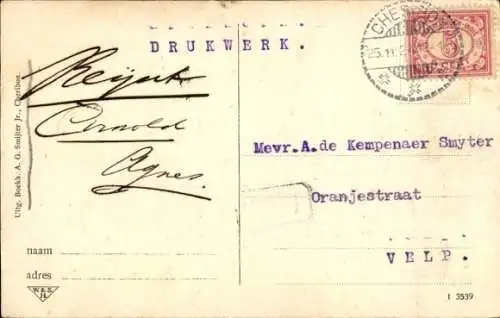 DRUKWERK.
CHE
25.11
5
Arnold
Agnes.
Mevr.A.de Kempenaer Smyter
Oranjestraat
VELP.
Uitg. Boekh. A. G. Smijter Jr., Cheribon.
naam
adres
I 3539